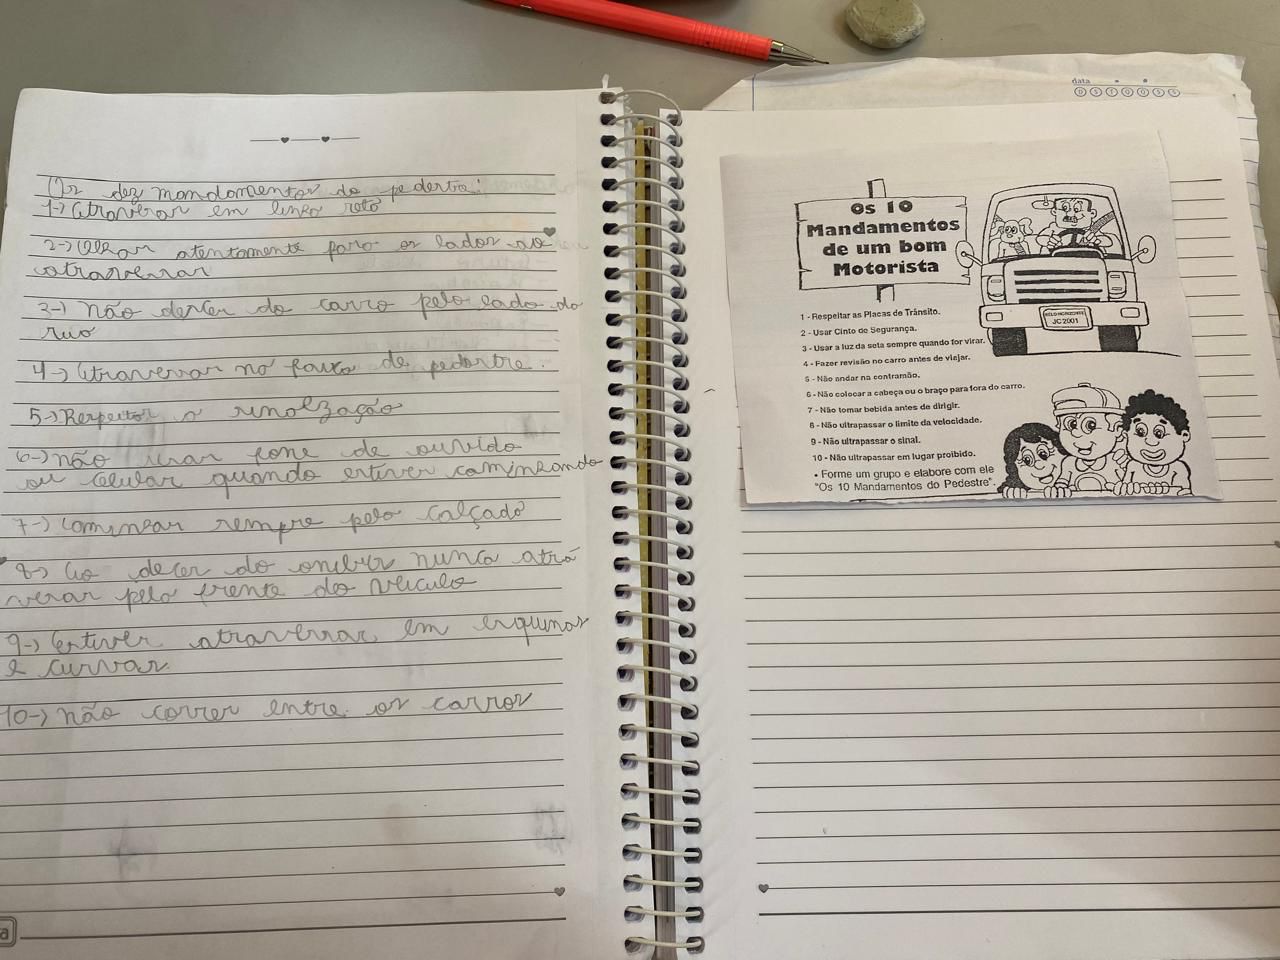 Os dez mandamentos do pedestre:
1-) Atravessar em linha reta
2-) Olhar atentamente para os lados ao
atravessar
3-) Não descer do carro pelo lado da
rua
4-) Atravessar na faixa de pedestre.
5-) Respeitar a sinalização
6-) não usar fone de ouvido
ou celular quando estiver caminhando
7-) Caminhar sempre pela calçada
8-) Ao decer do onibus nunca atra
vesar pela frente do veiculo
9-) Estiver atravessar em esquinas
e curvas.
10-) não correr entre os carros
data
D S T Q Q S S
Os 10
Mandamentos
de um bom
Motorista
BELO HORIZONTE
JC 2001
1 - Respeitar as Placas de Trânsito.
2 - Usar Cinto de Segurança.
3 - Usar a luz da seta sempre quando for virar.
4 - Fazer revisão no carro antes de viajar.
5 - Não andar na contramão.
6 - Não colocar a cabeça ou o braço para fora do carro.
7 - Não tomar bebida antes de dirigir.
8 - Não ultrapassar o limite da velocidade.
9 - Não ultrapassar o sinal.
10 - Não ultrapassar em lugar proibido.
• Forme um grupo e elabore com ele
"Os 10 Mandamentos do Pedestre".